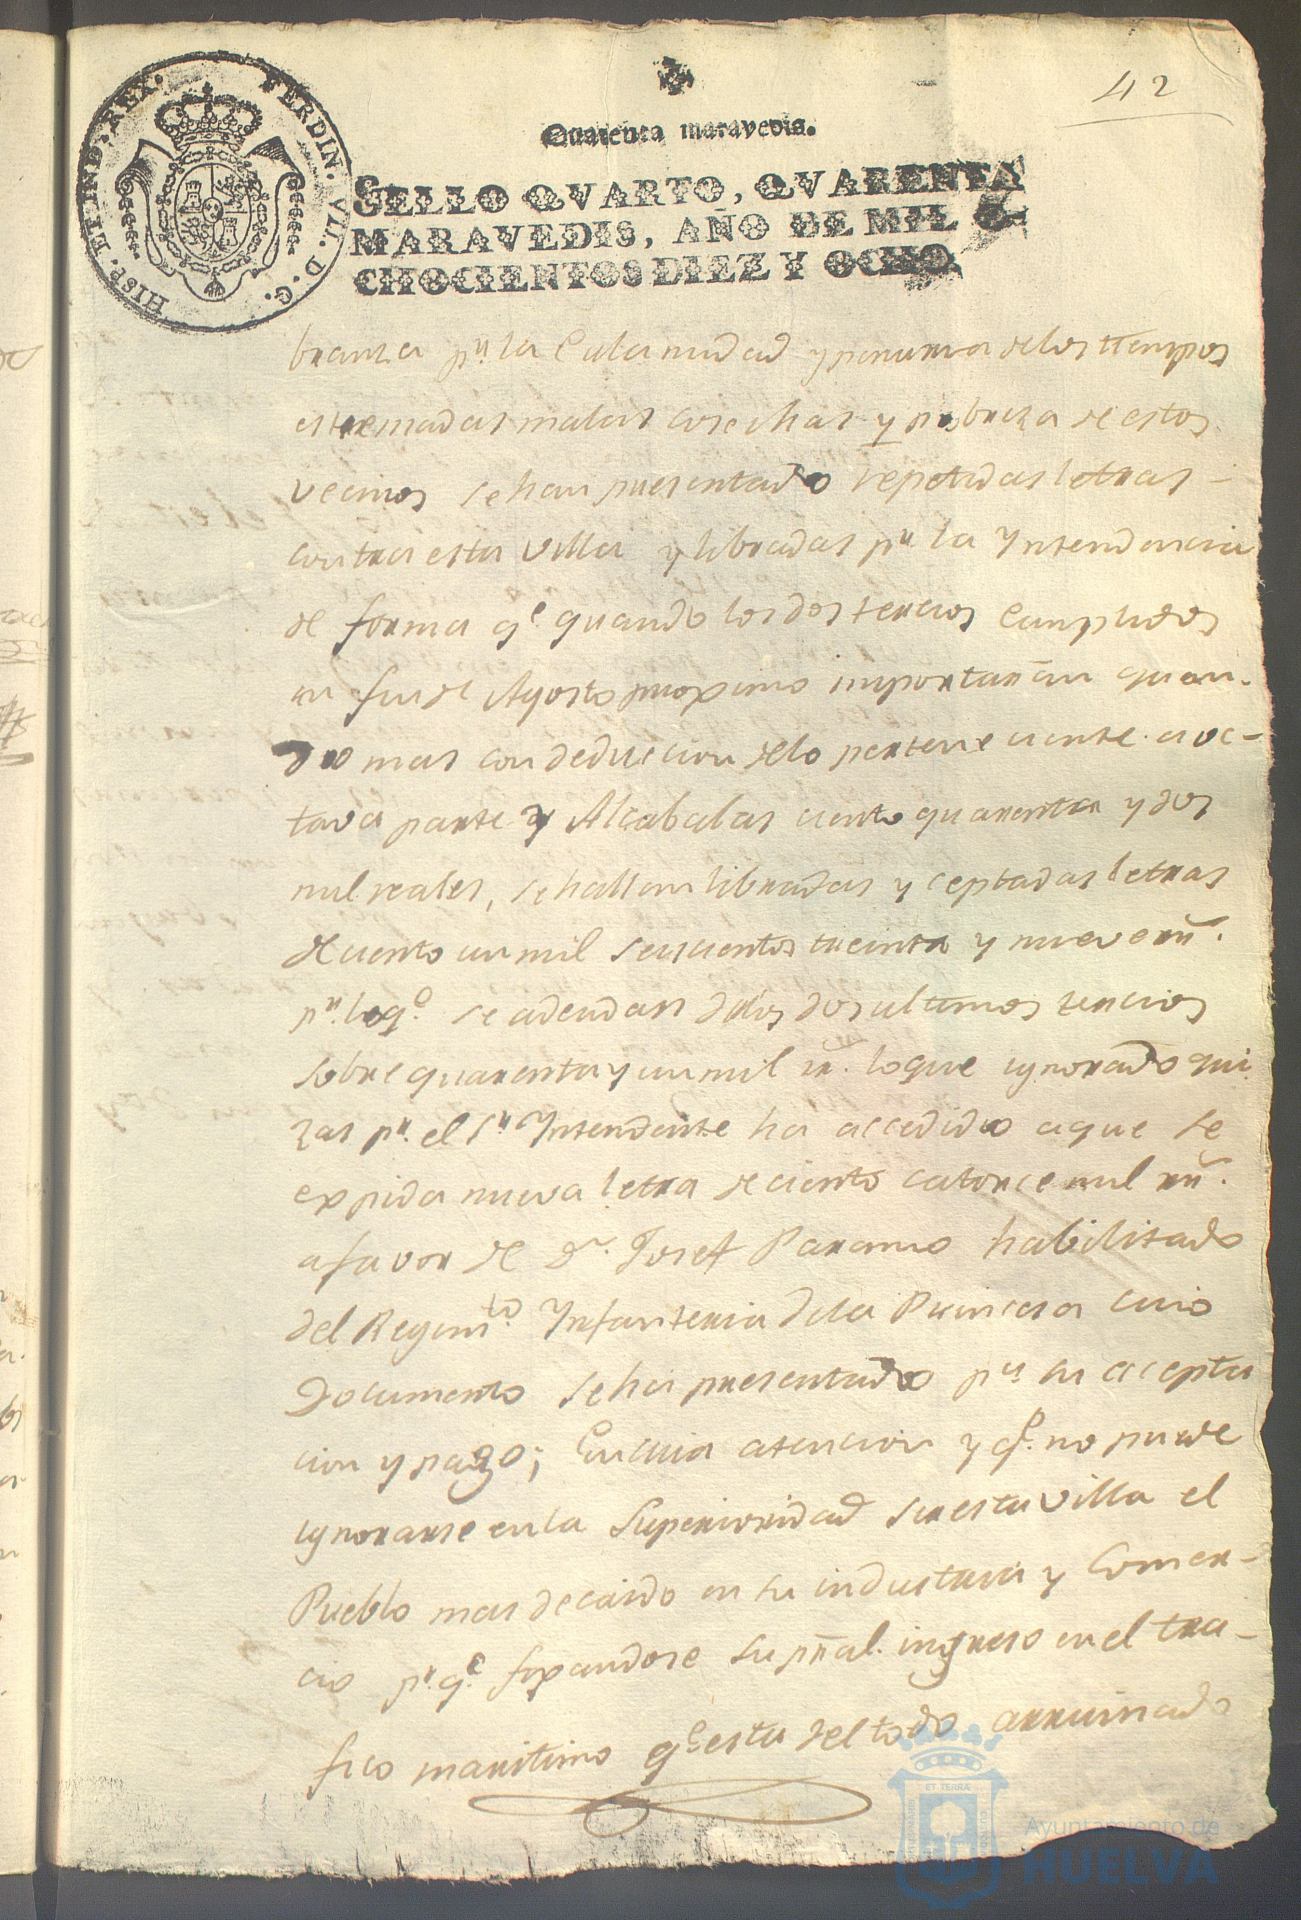 42
Quarenta maravedis.
HISP. ET IND. REX. FERDIN. VII. D. G.
SELLO QVARTO, QVARENTA
MARAVEDIS, AÑO DE MIL O
CHOCIENTOS DIEZ Y OCHO.
branza pr. la Calamidad y penuria de los tiempos
estremadas malas cosechas y pobreza de estos
vecinos se han presentado repetidas letras
contra esta villa y libradas pr. la Yntendencia
de forma qe. quando los dos tercios Cumplidos
en fin de Agosto proximo importarán quan-
do mas con deducion delo perteneciente a oc-
tava parte y Alcabalas ciento quarenta y dos
mil reales, se hallan libradas y ceptadas letras
de ciento un mil seiscientos treinta y nueve rrs.
pr. lo qe. se adeudan delos dos ultimos tercios
sobre quarenta y un mil rs. loque ygnorado qui
zas pr. el Sr. Yntendente ha accedido aque se
expida nueva letra de ciento catorce mil rrs.
a favor de Dn. Josef Paramo habilitado
del Regimto. Ynfanteria dela Princesa cuio
Documento se ha presentado pa. su acepta
cion y pago; En cuia atencion y qe. no puede
ygnorarse en la Superioridad ser esta villa el
Pueblo mas decaido en su industria y Comer-
cio pr. qe. fixandose su pral. ingreso en el tra-
fico maritimo qe. esta del todo arruinado
ET TERRÆ
Ayuntamiento de
HUELVA